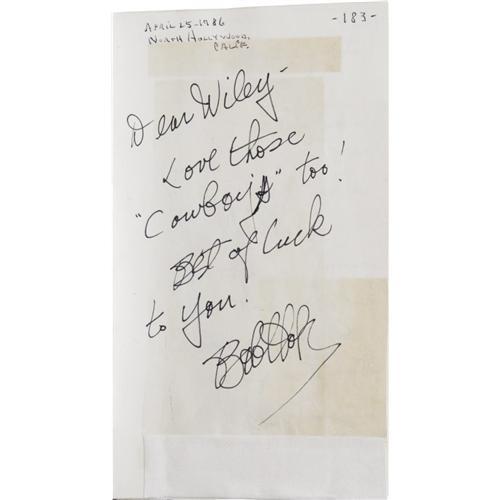 APRIL 25-1986
-183-
NORTH HOLLYWOOD,
CALIF.
Dear Wiley-
Love those
"Cowboys" too!
Best of Luck
to you!
Bob Hope